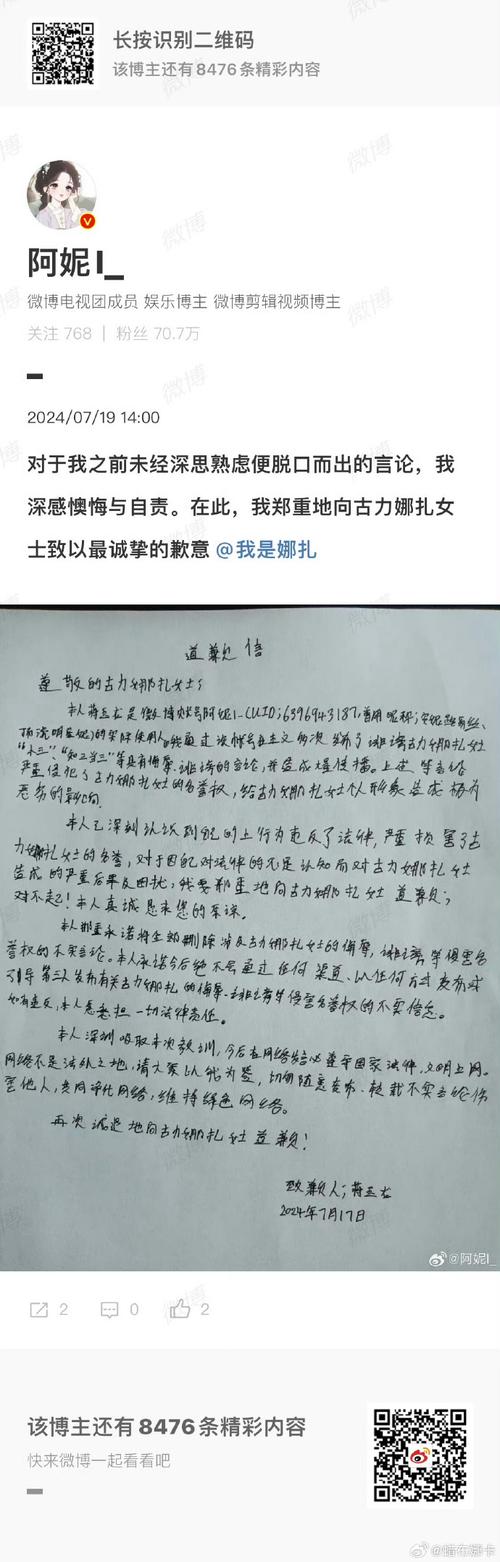 长按识别二维码
该博主还有8476条精彩内容
阿妮I_
微博电视团成员 娱乐博主 微博剪辑视频博主
关注 768 | 粉丝 70.7万
2024/07/19 14:00
对于我之前未经深思熟虑便脱口而出的言论，我
深感懊悔与自责。在此，我郑重地向古力娜扎女
士致以最诚挚的歉意 @我是娜扎
道歉信
尊敬的古力娜扎女士：
本人蒋 是微博账号阿妮I_(UID:6396943187,曾用昵称:
的实际使用人。我通过该账号 多次 了诽谤古力娜扎女士
"小三"、"知三当三"等具有侮辱、诽谤的言论,并造成大量传播。上述 等言论
严重侵犯了古力娜扎女士的名誉权，给古力娜扎女士个人形象造成极为
恶劣的影响。
本人已深刻认识到自己的上 行为违反了法律，严重损害了古
力娜扎女士的名誉，对于因自己对法律的不足认知而对古力娜扎女士
造成的严重后果及困扰，我要郑重地向古力娜扎女士道歉；
对不起！本人真诚恳求您的原谅。
本人郑重承诺将全部删除涉及古力娜扎女士的侮辱，诽谤等侵害名
誉权的不实言论。本人承诺今后绝不会通过任何渠道、以任何方式发布或
引导第三人发布有关古力娜扎的侮辱、诽谤等侵害名誉权的不实信息。
如有违反，本人愿承担一切法律责任。
本人深刻吸取本次教训，今后在网络发言必遵守国家法律，文明上网。
网络不是法外之地，请大家以我为鉴，切勿随意发布、转载不实言论伤
害他人，共同净化网络，维持绿色网络。
再次诚恳地向古力娜扎女士道歉！
致歉人：蒋
2024年7月17日
@阿妮I_
2
0
2
该博主还有8476条精彩内容
快来微博一起看看吧
@蜡布娜卡